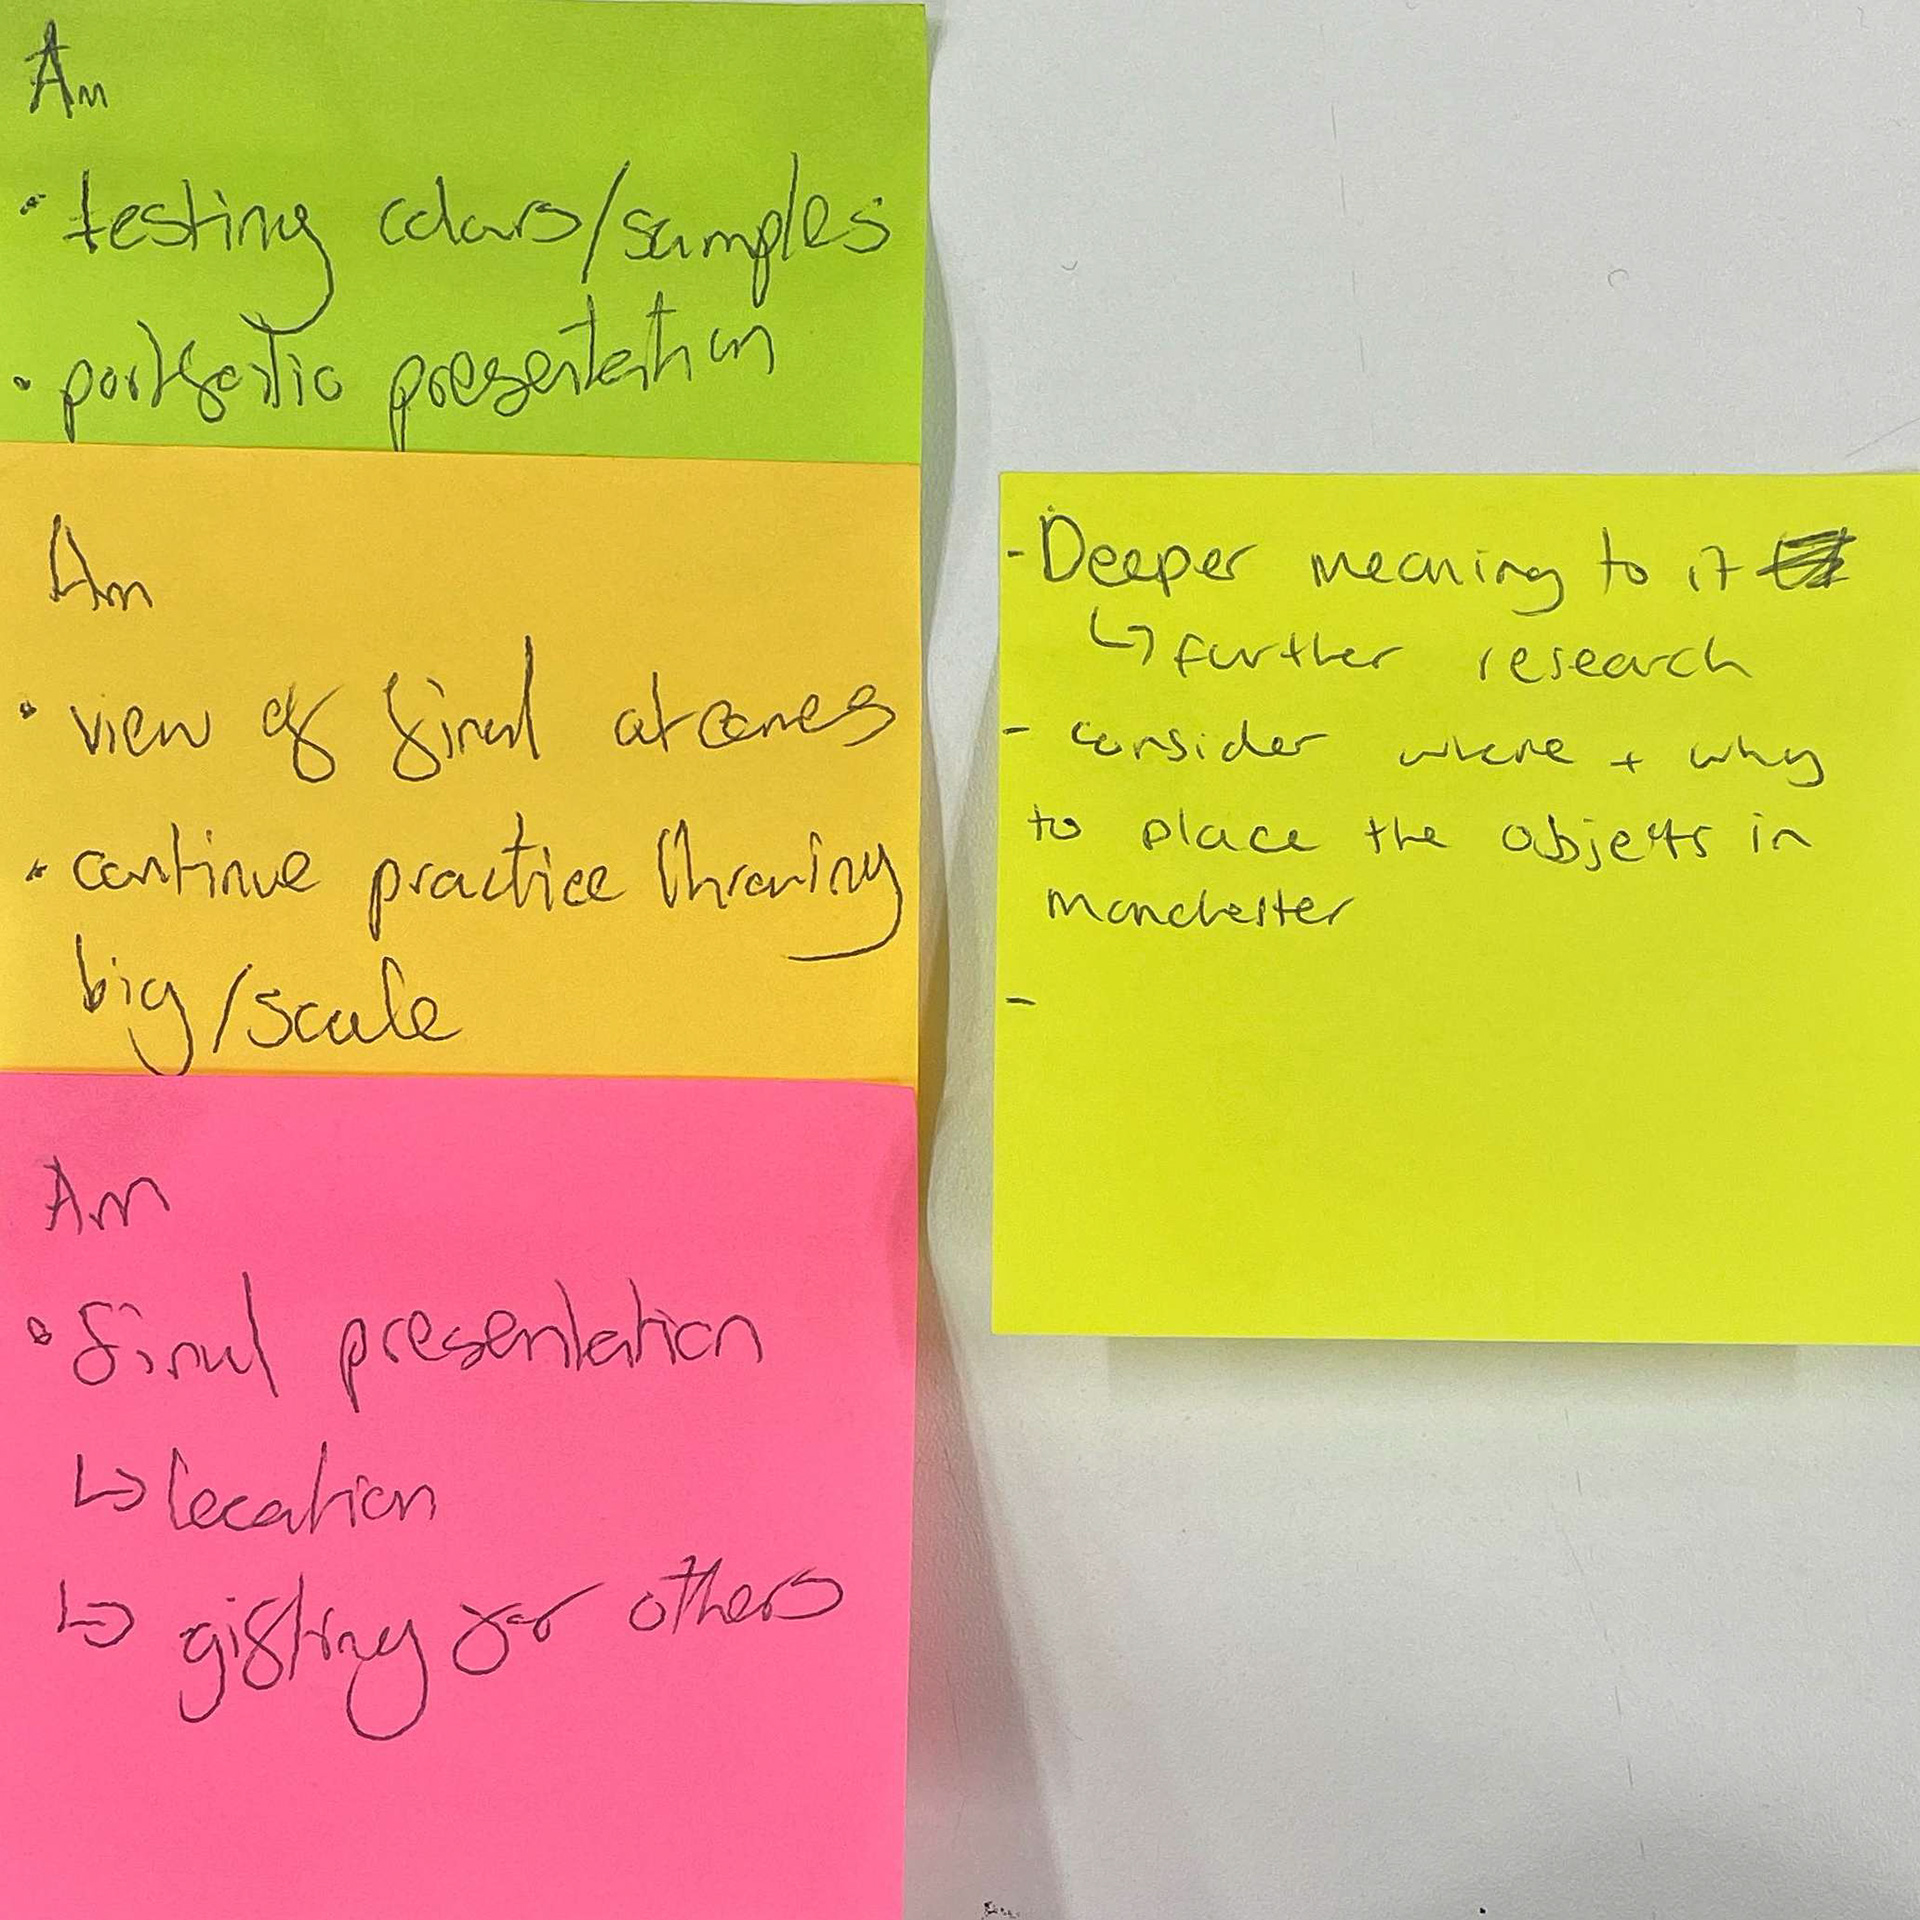 Am
• testing colours/samples
• portfolio presentation
Am
• view of final outcomes
• continue practice throwing
big/scale
Am
• final presentation
↳ location
↳ gifting for others
- Deeper meaning to it
↳ further research
- consider where + why
to place the objects in
manchester
-